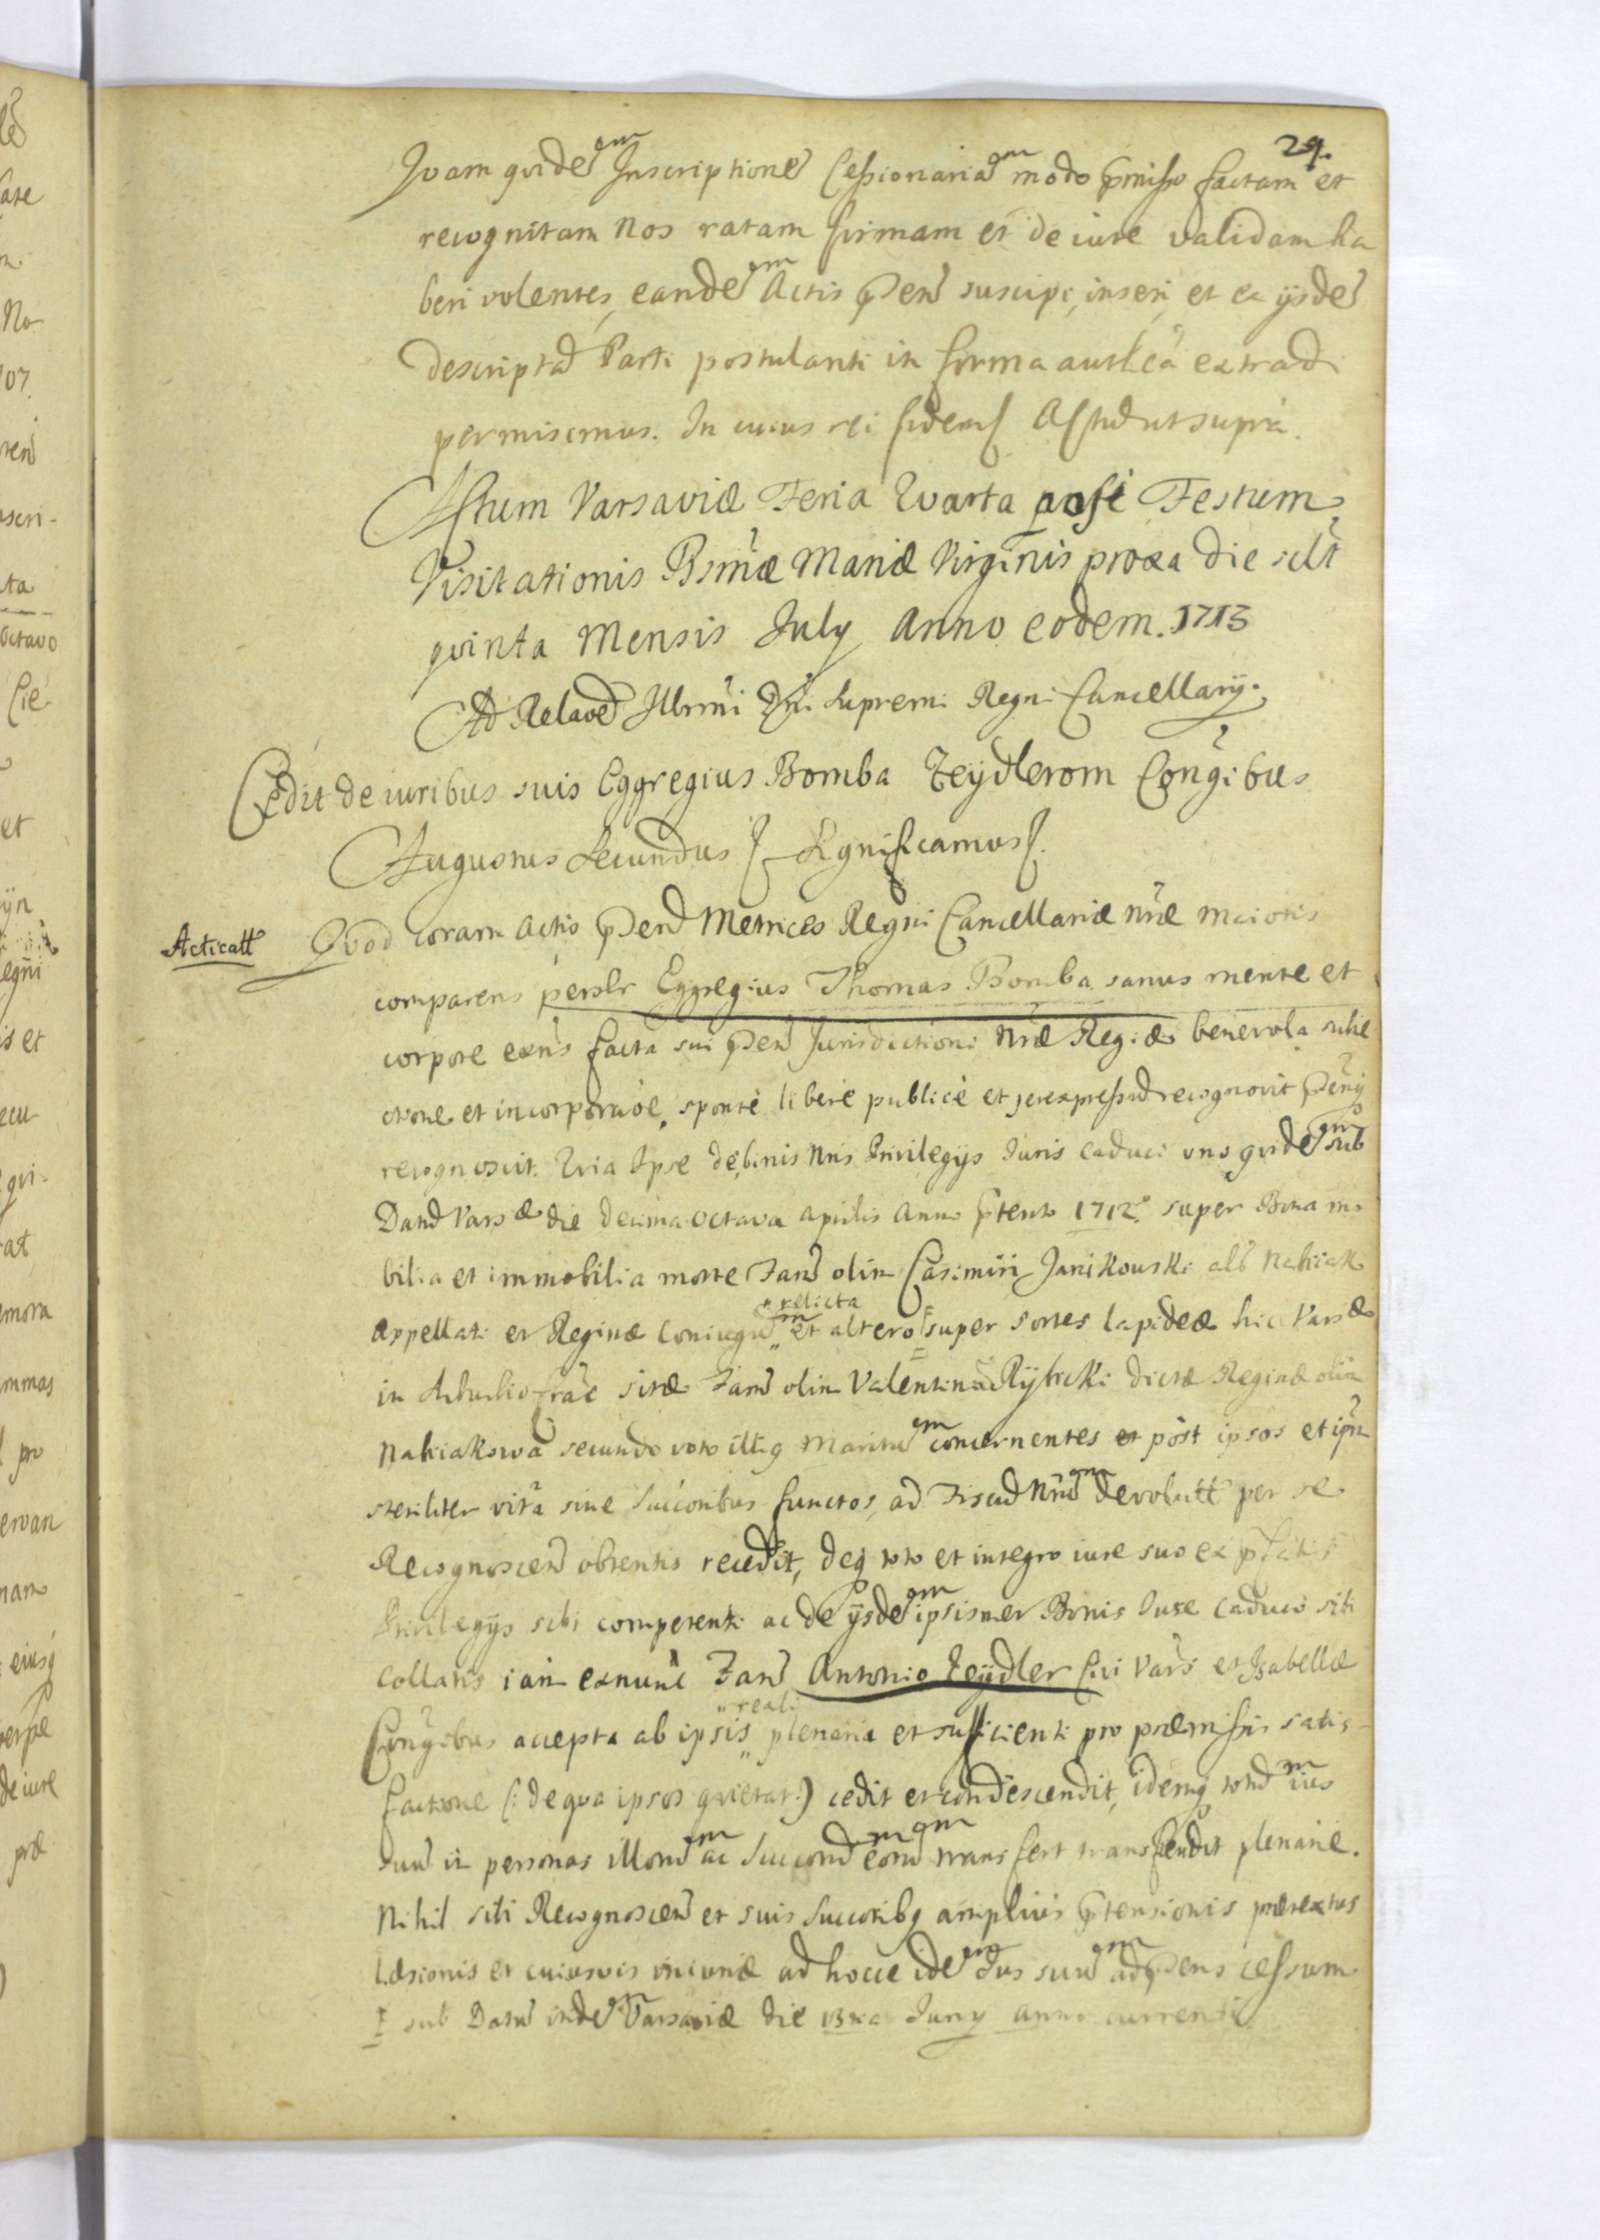 29.
Quam quidem Inscriptionem Cessionariam modo pmisso factam et
recognitam Nos ratam firmam et de iure validam ha
beri volentes, eandem Actis pnt suscipi, inseri, et ex ijsdem
descriptam Parti postulanti in forma authca extradi
permisimus. In cuius rei fidem Actum ut supra.
Actum Varsaviæ Feria Quarta post Festum
Visitationis Bsmæ Mariæ Virginis proxa die sclt
quinta Mensis July Anno eodem. 1713
Ad Relaõem Illrmi Dni Supremi Regni Cancellarij.
Cedit de iuribus suis Eggregius Bomba Zeydlerom Congibus
Augustus Secundus Significamus
Acticatt Quod coram Actis pnt Metrices Regni Cancellariæ nræ maioris
comparens persolr Eggregius Thomas Bomba sanus mente et
corpore exns facta sui pnt Jurisdictioni nræ Regiæ benevola subie
ctione et incorporaõe, sponte libere publice et per expressum recognovit
recognoscit. Quia Ipse de binis nris Privilegijs Juris caduci uno quidem sub
Datt Varsæ die decima octava aprilis Anno 1712° super Bona mo
bilia et immobilia morte Fam olim Casimiri Janikowski als Nakiak
Appellati et Reginæ Coniugum relicta et altero super sortes lapideæ hic Varsæ
in sitæ Fam olim Valentinum Rybicki dictæ Reginæ olim
Nakiakowa secundo voto illig Maritum concernentes post ipsos et
steriliter vita sine Succoribus functos, ad Fiscum Nrum devolutt per se
Recognoscen obtentis recedit, deq toto et integro iure suo ex
Privilegijs sibi competenti ac de ijsdem ipsismet Bonis Jure caduco sibi
collatis iam exnunc Fam Antonio Zeydler Civi Vars et Isabellæ
Congibus accepta ab ipsis reali plenaria et sufficienti pro præmissis satis
factione (: de qua ipsos quietat :) cedit et condescendit, idemq totum ius
suum in personas illorum ac Succorum eorum transfert transfundit plenarie.
Nihil sibi Recognoscen et suis Succoribq amplius ptensionis prætextus
læsionis et cuiusvis iniuriæ ad hocce idem Jus suum ad pns cessum
sub Datt indem Varsaviæ die 13tia Juny anno currenti